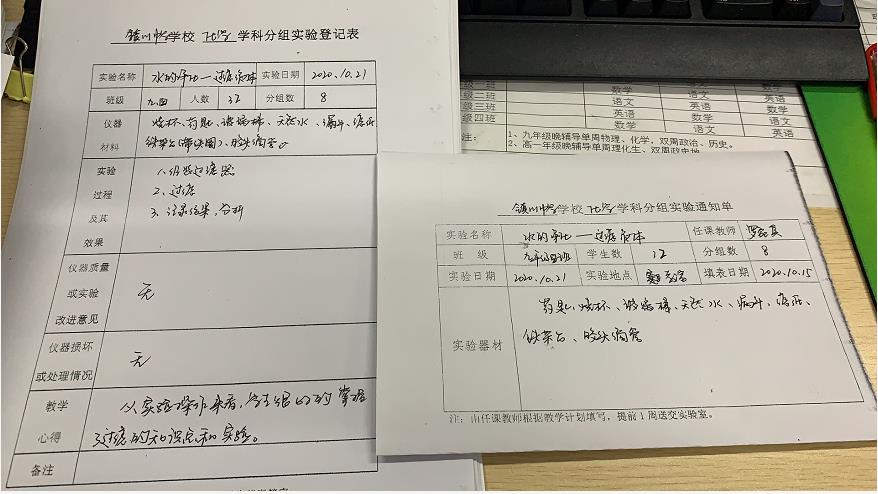 学校 化学 学科分组实验登记表
实验名称 水的净化—过滤液体 实验日期 2020.10.21
班级 九四 人数 32 分组数 8
仪器 烧杯、药匙、玻璃棒、天然水、漏斗、滤纸
材料 铁架台(带铁圈)、胶头滴管。
实验
过程
及其
效果
1、组装过滤器
2、过滤
3、记录结果,分析
仪器质量
或实验
改进意见
无
仪器损坏
或处理情况
无
教学
心得
从实验操作来看,学生很好的掌握
过滤的知识点和实验。
备注
一班 数学 英语
级二班 语文 英语 数学
级三班 英语 数学 语文
级四班 数学 语文 英语
注:
1、九年级晚辅导单周物理、化学,双周政治、历史。
2、高一年级晚辅导单周理化生、双周政史地
学校 化学 学科分组实验通知单
实验名称 水的净化—过滤液体 任课教师
班 级 九年级四班 学生数 32 分组数 8
实验日期 2020.10.21 实验地点 实验室 填表日期 2020.10.15
实验器材
药匙、烧杯、玻璃棒、天然水、漏斗、滤纸、
铁架台、胶头滴管
注:由任课教师根据教学计划填写,提前1周送交实验室。